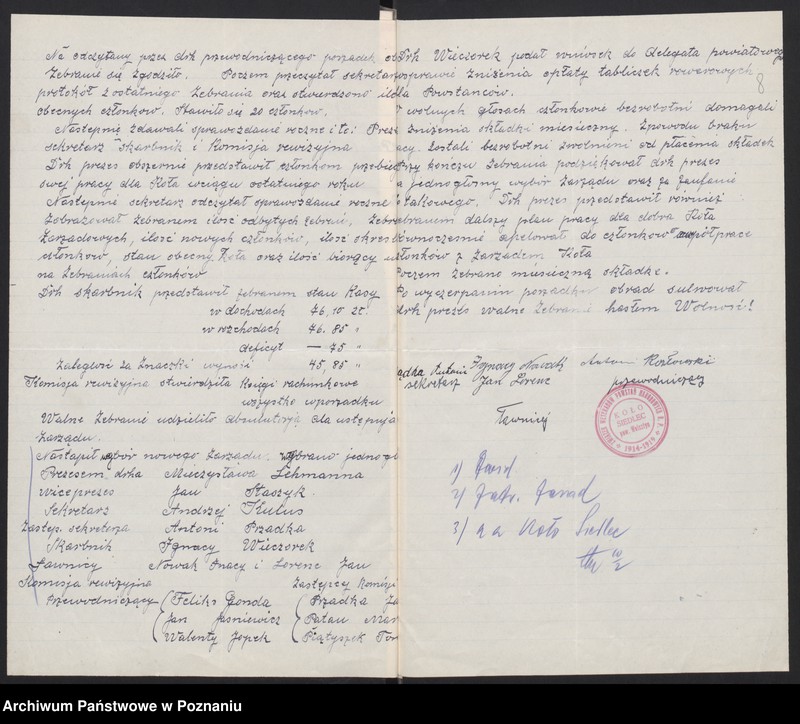 Na odczytany przez drh przewodniczącego porządek
Zebranie się zgodziło. Poczem przeczytał sekretarz
protokół z ostatniego Zebrania oraz stwierdzono
obecnych członków. Stawiło się 20 członków.
Następnie zdawali sprawozdanie roczne i to: Prezes
sekretarz skarbnik i Komisja rewizyjna
Drh prezes obszernie przedstawił członkom
swej pracy dla Koła wciągu ostatniego roku
Następnie sekretarz odczytał sprawozdanie roczne
Zobrazował Zebranem ilość odbytych Zebrań,
Zarządowych, ilość nowych członków, ilość
członków, stan obecny Koła oraz ilość biorący
na Zebraniach członków
Drh skarbnik przedstawił zebranem stan Kasy
w dochodach 46,10 zł.
w rozchodach 46.85 "
deficyt — 75 "
Zaległość za Znaczki wynosi 45,85 "
Komisja rewizyjna stwierdziła Księgi rachunkowe
wszystko wporządku
Walne Zebranie udzieliło absolutorją dla
Zarządu.
Nastąpił wybór nowego Zarządu. Wybrano
Prezesem drha Mieczysława Lehmanna
wiceprezes Jan Staszyk.
Sekretarz Andrzej Kulus
Zastęp. sekretarza Antoni Prządka
Skarbnik Ignacy Wieczorek
Ławnicy Nowak Ignacy i Lorenc Jan
Komisja rewizyjna Zastępcy Komisji
Przewodniczący (Feliks Gonda (Prządka
Jan Jaśniewicz
Walenty Piątyszek
Drh Wieczorek podał wniosek do Delegata powiatowego
sprawie Zniżenia opłaty tabliczek rowerowych
dla Powstańców. 8
wolnych głosach członkowie bezrobotni domagali
Zniżenia składki miesięczny. Zpowodu braku
Zostali bezrobotni zwolnieni od płacenia składek
Przy kończu Zebrania podziękował drh prezes
za jednogłośny wybór Zarządu oraz za zaufanie
takowego. Drh prezes przedstawił również
dalszy plan pracy dla dobra Koła
równocześnie apelował do członków o współprace
członków z Zarządem Koła
Poczem zebrano miesięczną składkę.
Po wyczerpaniu porządku obrad
drh prezes walne Zebranie hasłem Wolność!
Antoni Ignacy Nowak Antoni Kozłowski
sekretarz Jan Lorenc przewodniczący
Ławnicy
KOŁO
SIEDLEC
pow. Wolsztyn
1914-1919
1)
2)
3) a a Koło Siedlec